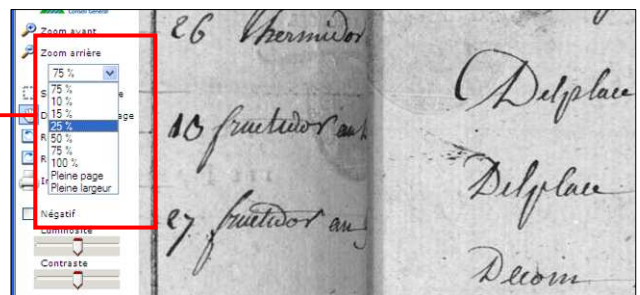 Conseil Général
Zoom avant
Zoom arrière
75 %
75 %
10 %
15 %
25 %
50 %
75 %
100 %
Pleine page
Pleine largeur
Négatif
Luminosité
Contraste
26 thermidor
10 fructidor an
27 fructidor an
Delplace
Delplace
Decoin